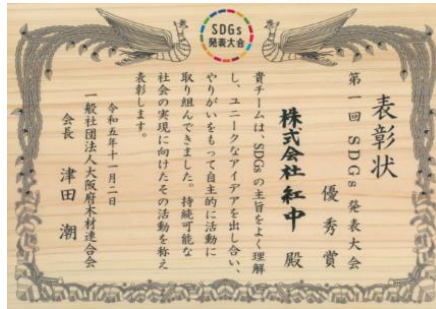 SDGs
発表大会
表彰状
第一回 SDGs 発表大会
優秀賞
株式会社 紅中 殿
貴チームは、SDGsの主旨をよく理解
し、ユニークなアイデアを出し合い、
やりがいをもって自主的に活動に
取り組んできました。持続可能な
社会の実現に向けたその活動を称え
表彰します。
令和五年十一月二日
一般社団法人大阪府木材連合会
会長 津田 潮